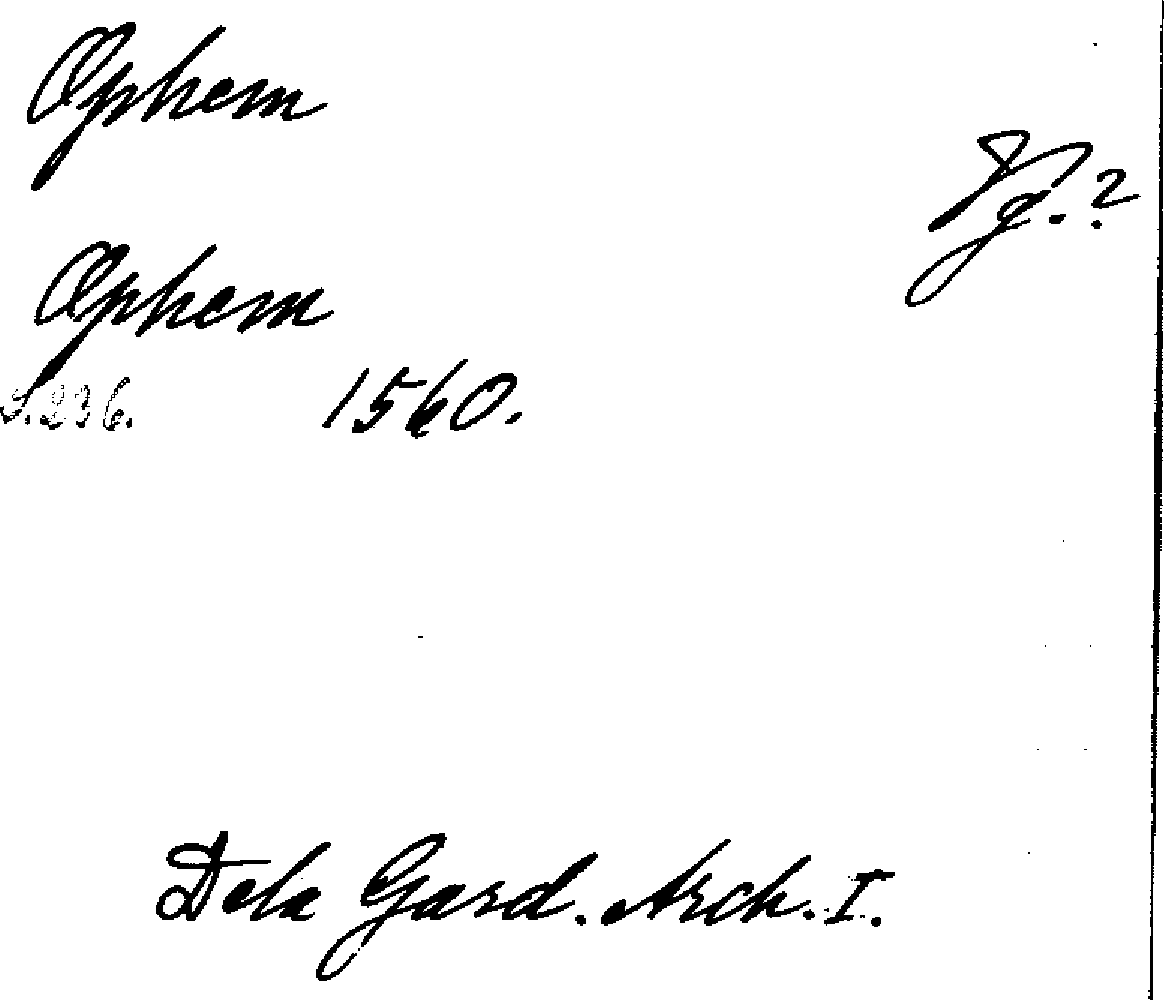 Ophem
Vg.?
Ophem
S. 236. 1560.
Dela Gard. Arch. I.